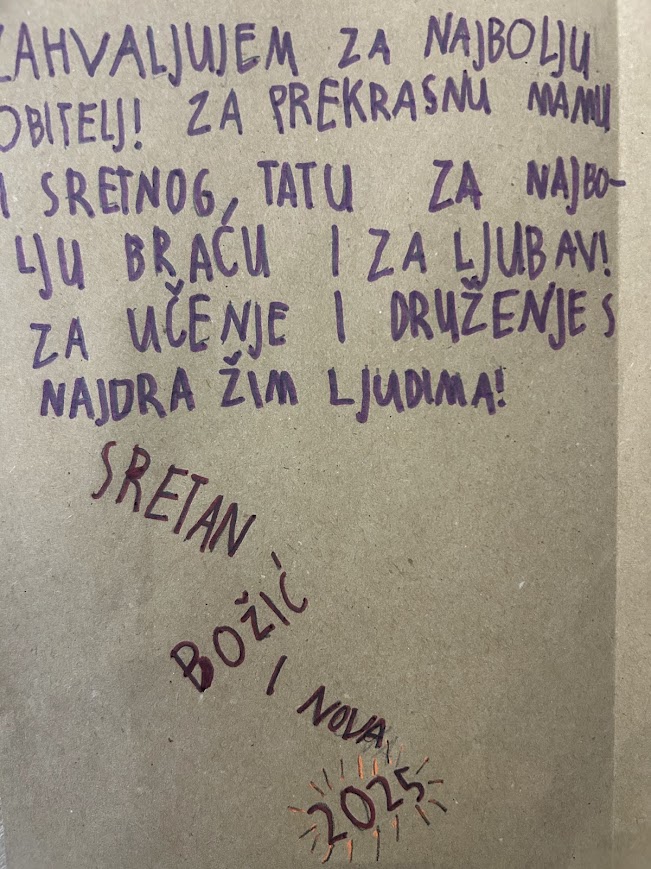 ZAHVALJUJEM ZA NAJBOLJU
OBITELJ! ZA PREKRASNU MAMU
I SRETNOG, TATU ZA NAJBO-
LJU BRAĆU I ZA LJUBAV!
ZA UČENJE I DRUŽENJE S
NAJDRAŽIM LJUDIMA!
SRETAN
BOŽIĆ
I NOVA
2025